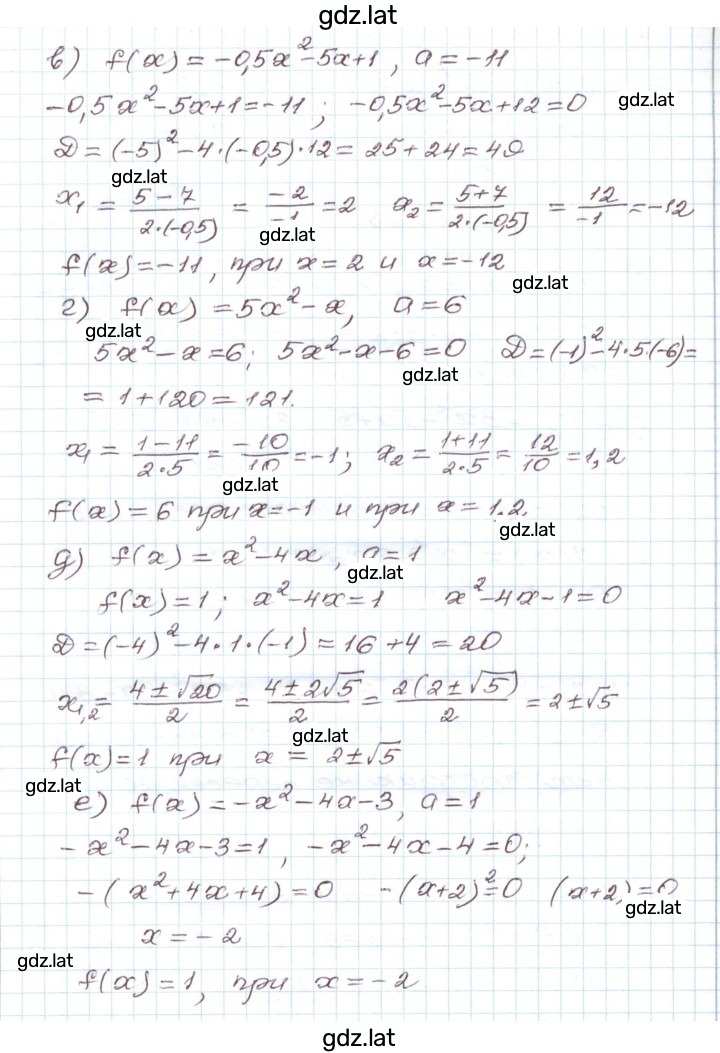 gdz.lat
в) f(x) = -0,5x² - 5x + 1, a = -11
-0,5x² - 5x + 1 = -11; -0,5x² - 5x + 12 = 0 gdz.lat
D = (-5)² - 4·(-0,5)·12 = 25 + 24 = 49
gdz.lat
x₁ = (5 - 7)/(2·(-0,5)) = (-2)/(-1) = 2 x₂ = (5+7)/(2·(-0,5)) = 12/(-1) = -12
gdz.lat
f(x) = -11, при x = 2 и x = -12
gdz.lat
г) f(x) = 5x² - x, a = 6
gdz.lat
5x² - x = 6; 5x² - x - 6 = 0 D = (-1)² - 4·5·(-6) =
gdz.lat
= 1 + 120 = 121.
x₁ = (1 - 11)/(2·5) = (-10)/10 = -1; x₂ = (1+11)/(2·5) = 12/10 = 1,2
gdz.lat
f(x) = 6 при x = -1 и при x = 1.2.
gdz.lat
д) f(x) = x² - 4x, a = 1
gdz.lat
f(x) = 1; x² - 4x = 1 x² - 4x - 1 = 0
D = (-4)² - 4·1·(-1) = 16 + 4 = 20
x₁,₂ = (4 ± √20)/2 = (4 ± 2√5)/2 = (2(2 ± √5))/2 = 2 ± √5
gdz.lat
f(x) = 1 при x = 2 ± √5
gdz.lat
е) f(x) = -x² - 4x - 3, a = 1
-x² - 4x - 3 = 1, -x² - 4x - 4 = 0;
-(x² + 4x + 4) = 0 -(x+2)² = 0 (x+2) = 0
gdz.lat
x = -2
gdz.lat
f(x) = 1, при x = -2
gdz.lat